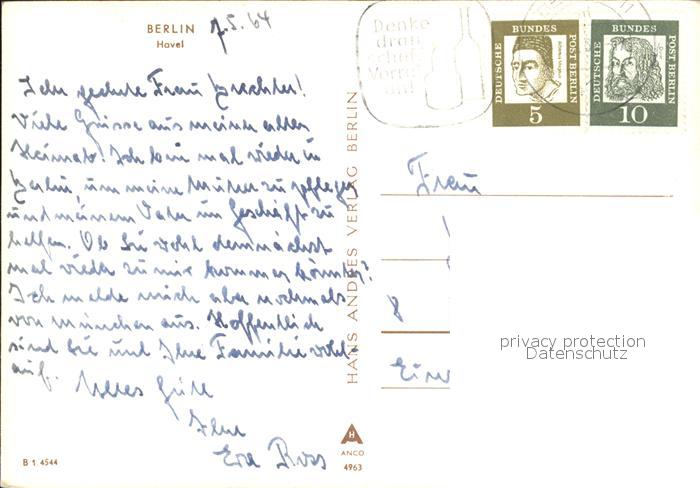 BERLIN
Havel
7.5.64
Denke
dran
schaff
Vorrat
an!
DEUTSCHE
BUNDES
POST BERLIN
5
DEUTSCHE
BUNDES
POST BERLIN
10
Sehr geehrte Frau
Viele Grüsse aus meiner alten
Heimat! Ich bin mal wieder in
Berlin um meine Mutter zu pflegen
und meinem Vater im Geschäft zu
helfen. Ob Sie wohl demnächst
mal wieder zu mir kommen können?
Ich melde mich aber nochmals
von München aus. Hoffentlich
sind Sie und Ihre Familie wohl-
auf. Alles Gute
Ihre
Eva
HANS ANDRES VERLAG BERLIN
Frau
8
privacy protection
Datenschutz
B 1 4544
H
ANCO
4963